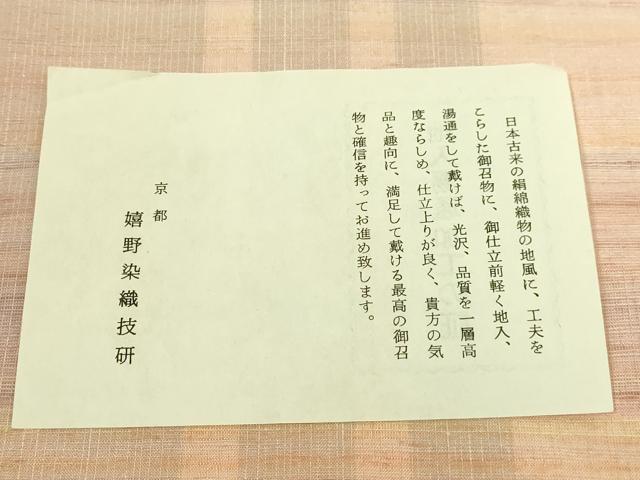 日本古来の絹綿織物の地風に、工夫を
こらした御召物に、御仕立前軽く地入、
湯通をして戴けば、光沢、品質を一層高
度ならしめ、仕立上りが良く、貴方の気
品と趣向に、満足して戴ける最高の御召
物と確信を持ってお進め致します。
京都
嬉野染織技研